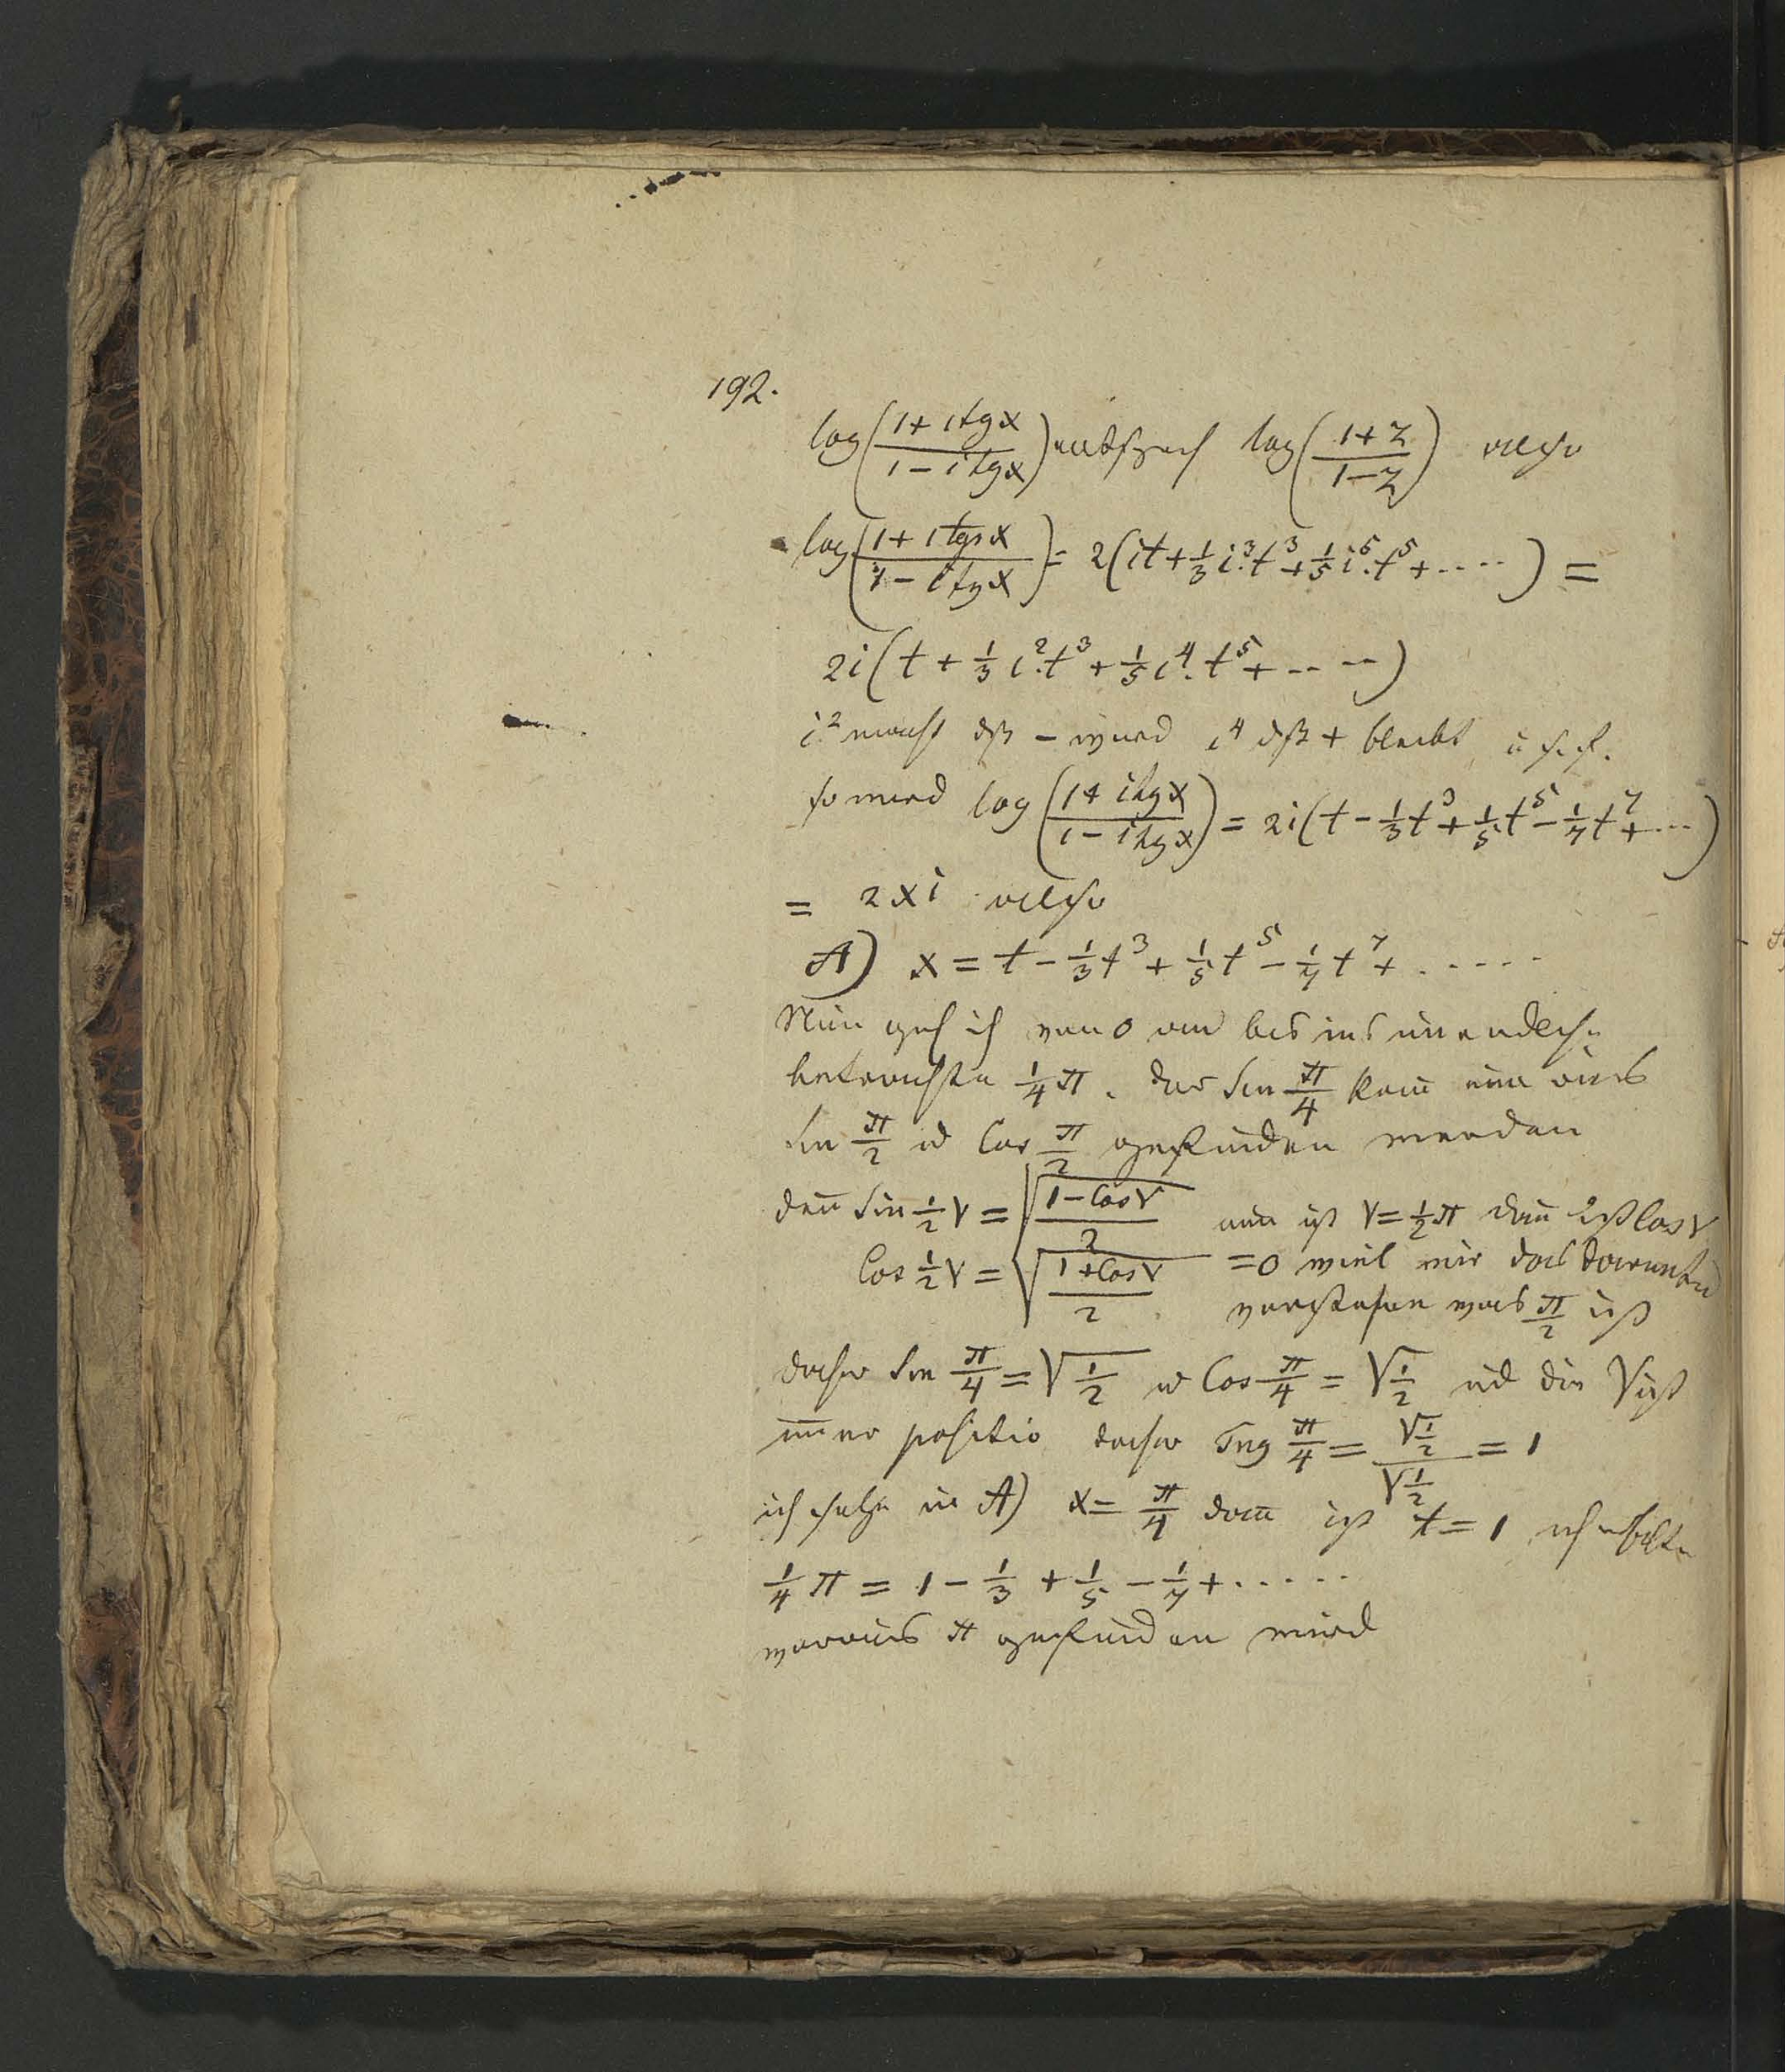 192.
log((1 + i tg x)/(1 − i tg x)) entsprech log((1+z)/(1−z)) also
log((1 + i tg x)/(1 − i tg x)) = 2(it + 1/3 i³.t³ + 1/5 i⁵.t⁵ + ....) =
2i(t + 1/3 i².t³ + 1/5 i⁴.t⁵ + ....)
i² macht dß − wird i⁴ dß + bleibt u s.f.
so wird log((1 + i tg x)/(1 − i tg x)) = 2i(t − 1/3 t³ + 1/5 t⁵ − 1/7 t⁷ + ...)
= 2xi also
A) x = t − 1/3 t³ + 1/5 t⁵ − 1/7 t⁷ + .....
Nun geh ich von 0 an bis ins unendliche
betrachte 1/4 π. der Sin π/4 kan nun aus
Sin π/2 u Cos π/2 gefunden werden
den̄ Sin 1/2 v = √((1−Cos v)/2) nun ist v = 1/2 π dan̄ ist Cos v
Cos 1/2 v = √((1+Cos v)/2) = 0 weil wir das darunter
verstehen was π/2 ist
daher Sin π/4 = √1/2 u Cos π/4 = √1/2 ud die √ ist
im̄er positiv daher Tng π/4 = √1/2 / √1/2 = 1
ich setze in A) x = π/4 dan̄ ist t = 1 ich erhalte
1/4 π = 1 − 1/3 + 1/5 − 1/7 + ......
woraus π gefunden wird